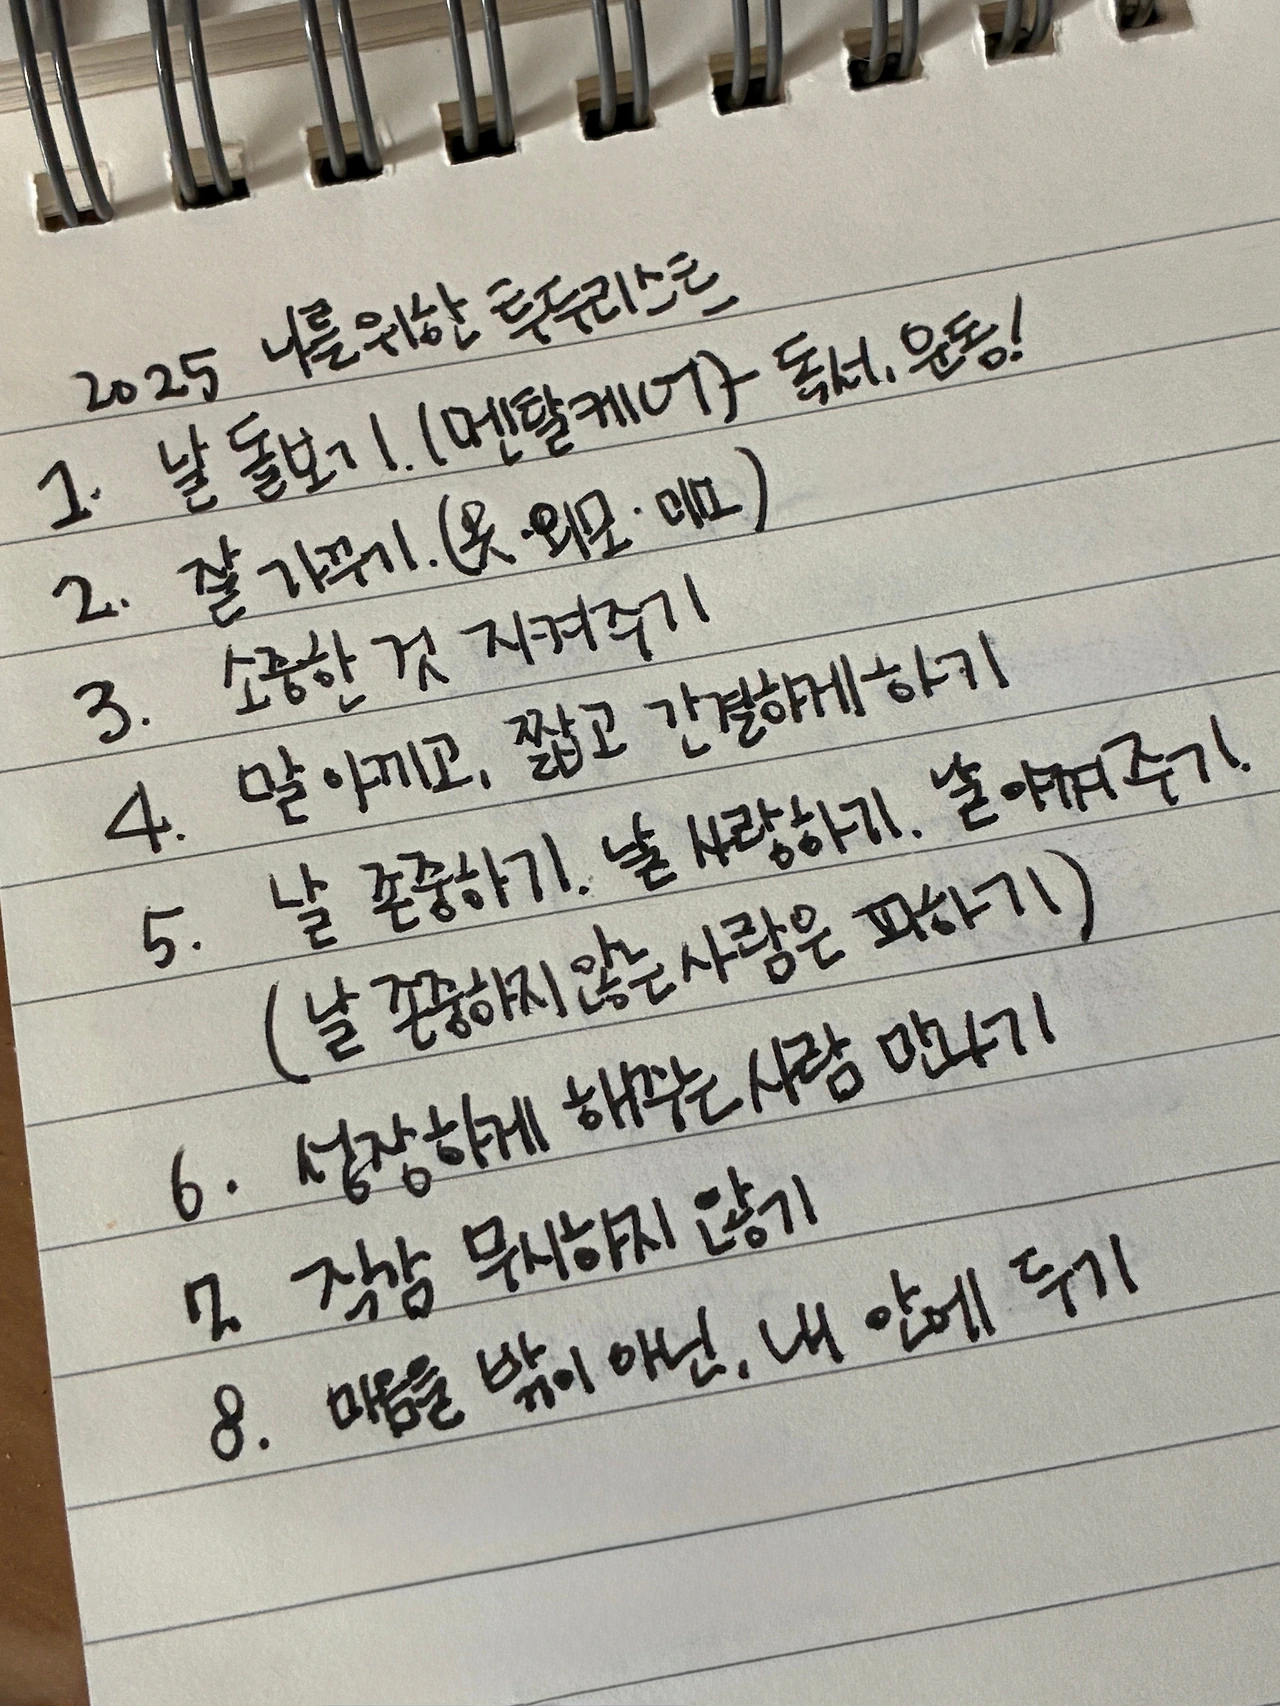 2025 나를위한 투두리스트
1. 날 돌보기. (멘탈케어) - 독서, 운동!
2. 잘 가꾸기. (옷·외모·미모)
3. 소중한 것 지켜주기
4. 말 아끼고, 짧고 간결하게 하기
5. 날 존중하기. 날 사랑하기. 날 아껴주기.
(날 존중하지 않는 사람은 피하기)
6. 성장하게 해주는 사람 만나기
7. 직감 무시하지 않기
8. 마음을 밖이 아닌, 내 안에 두기